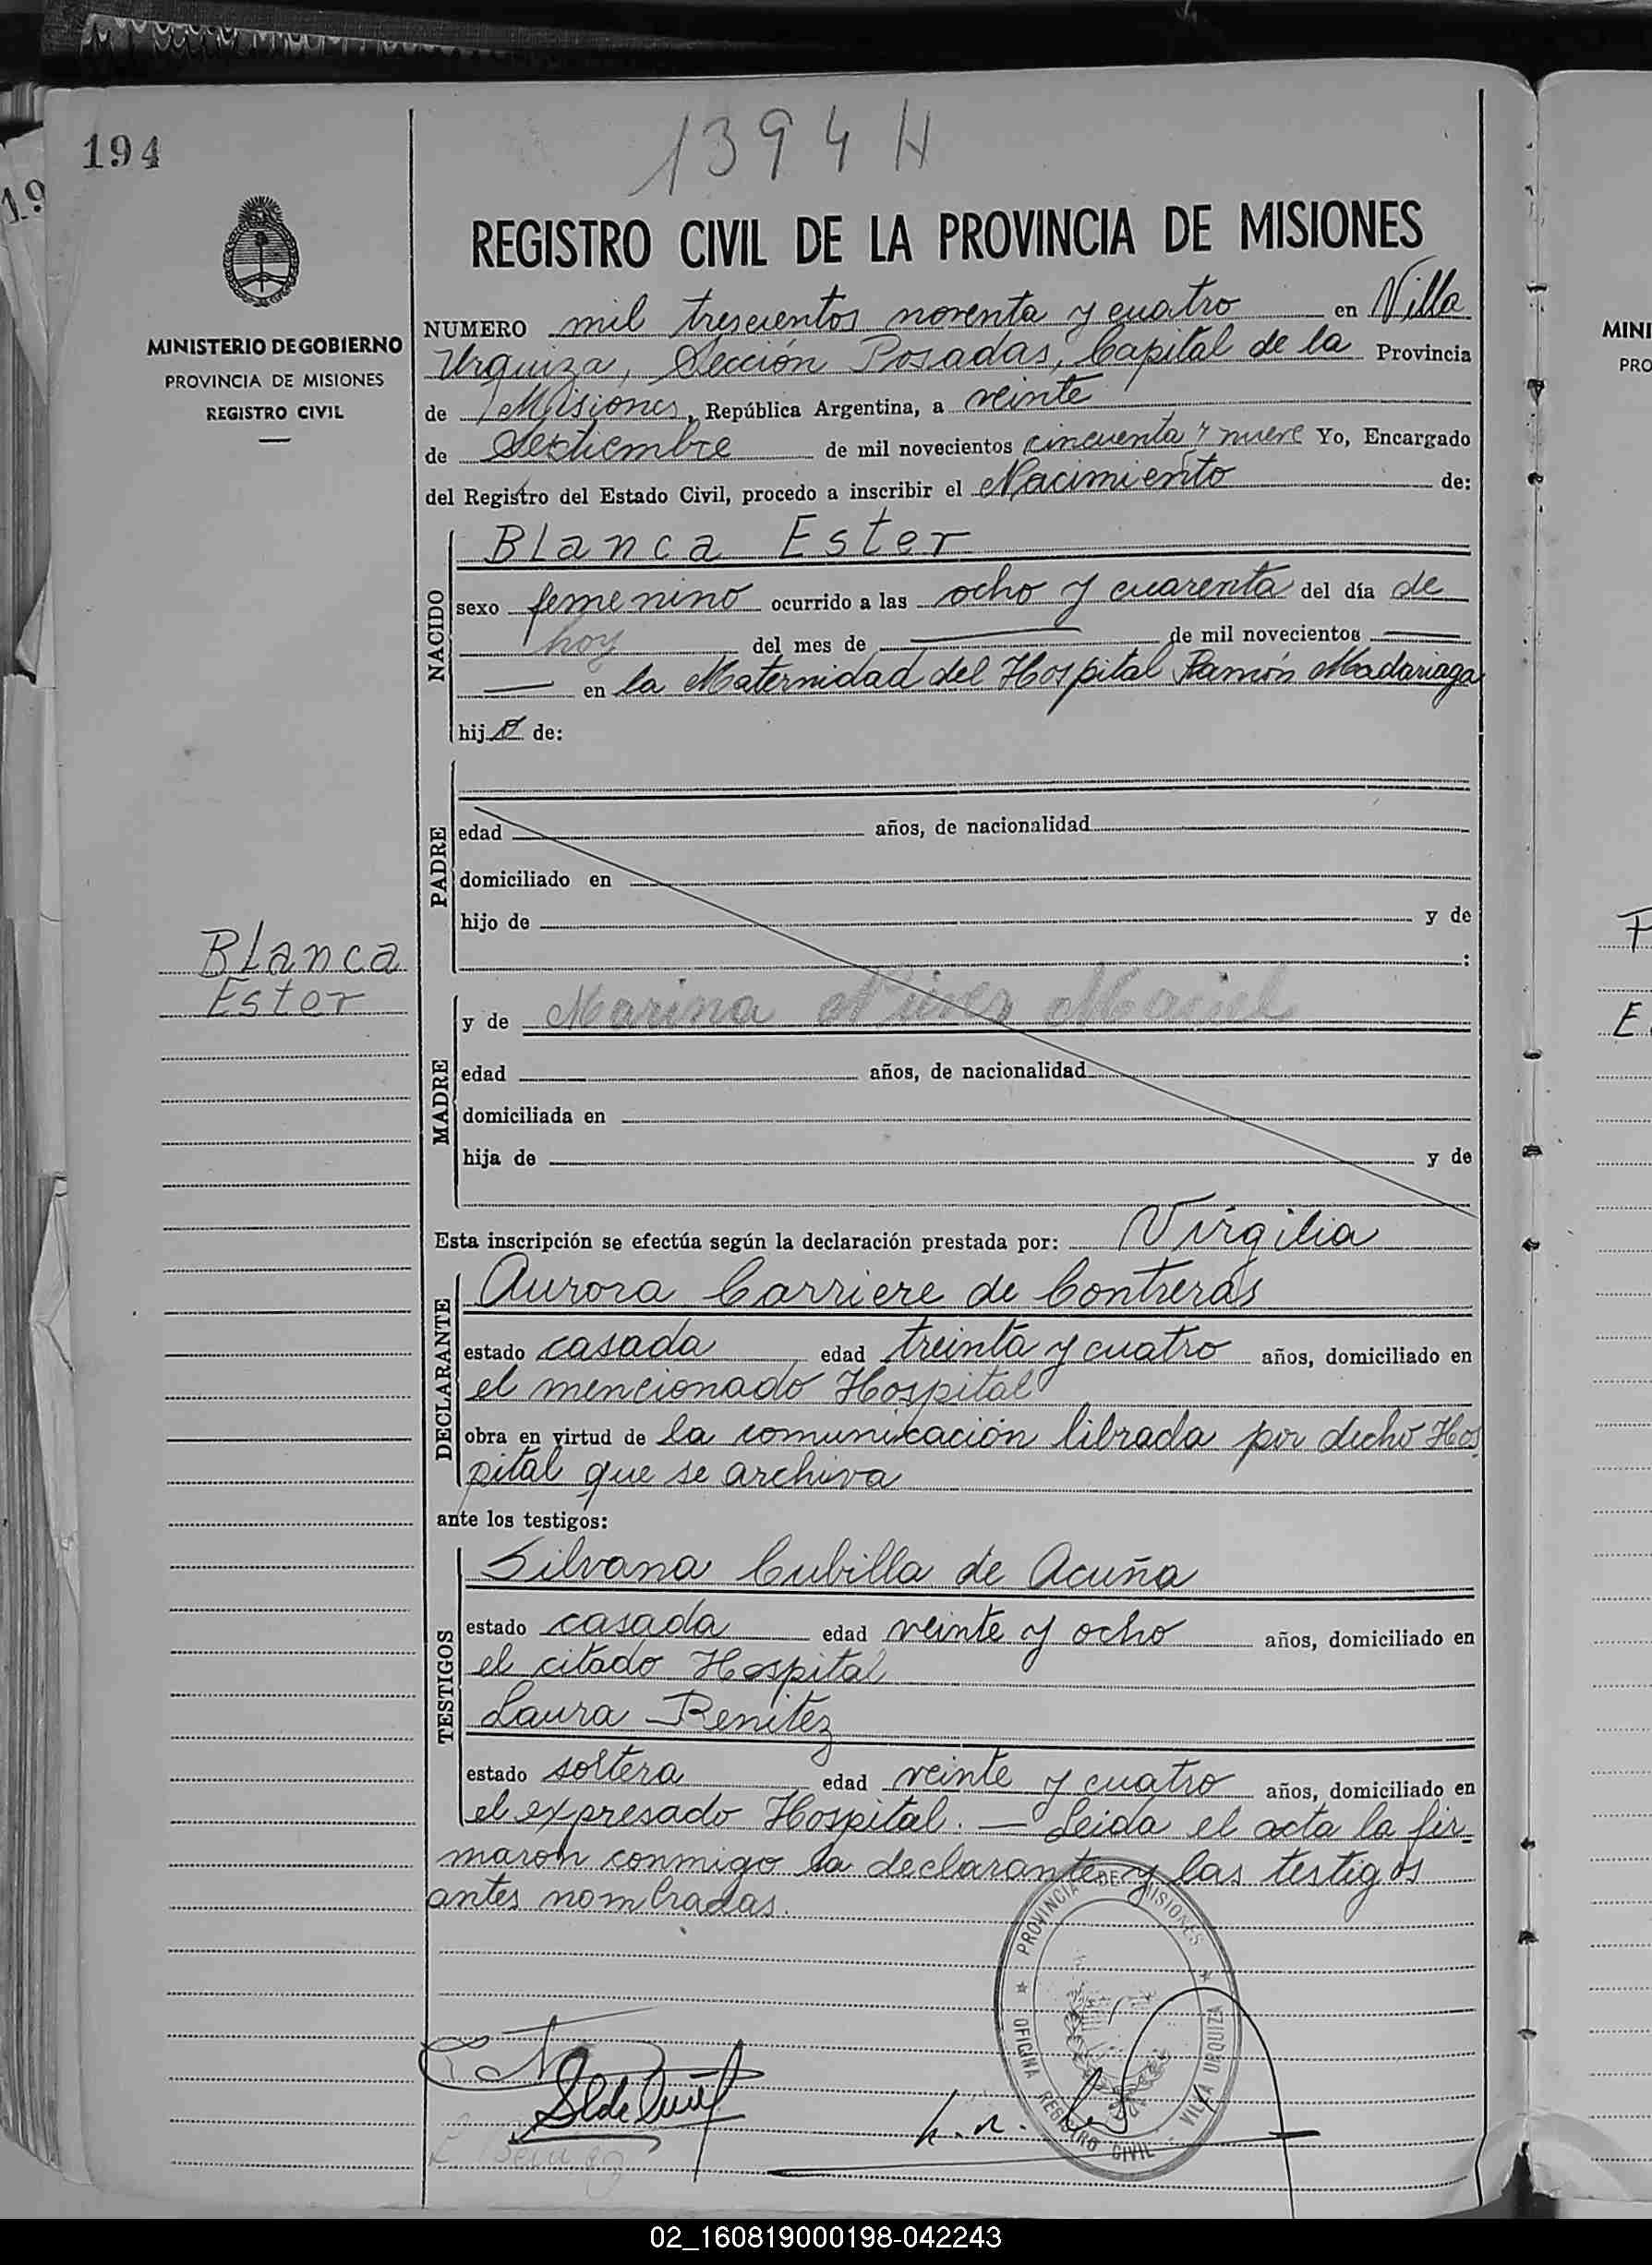 194
1394 H
REGISTRO CIVIL DE LA PROVINCIA DE MISIONES
MINISTERIO DE GOBIERNO
PROVINCIA DE MISIONES
REGISTRO CIVIL
NUMERO mil trescientos noventa y cuatro en Villa
Urquiza, Sección Posadas, Capital de la Provincia
de Misiones, República Argentina, a veinte
de Septiembre de mil novecientos cincuenta y nueve Yo, Encargado
del Registro del Estado Civil, procedo a inscribir el Nacimiento de:
NACIDO
Blanca Ester
sexo femenino ocurrido a las ocho y cuarenta del día de
hoy del mes de — de mil novecientos —
— en la Maternidad del Hospital Ramón Madariaga
hij de:
PADRE
edad años, de nacionalidad
domiciliado en
hijo de y de
:
Blanca
Ester
MADRE
y de Marina Maciel
edad años, de nacionalidad
domiciliada en
hija de y de
Esta inscripción se efectúa según la declaración prestada por: Virgilia
DECLARANTE
Aurora Carriere de Contreras
estado casada edad treinta y cuatro años, domiciliado en
el mencionado Hospital
obra en virtud de la comunicación librada por dicho Hos
pital que se archiva
ante los testigos:
TESTIGOS
Silvana Cubilla de Acuña
estado casada edad veinte y ocho años, domiciliado en
el citado Hospital
Laura Benitez
estado soltera edad veinte y cuatro años, domiciliado en
el expresado Hospital. — Leida el acta la fir-
maron conmigo la declarante y las testigos
antes nombradas.
PROVINCIA DE MISIONES
OFICINA REGISTRO CIVIL VILLA URQUIZA
MINI
PRO
F
E
19
02_160819000198-042243